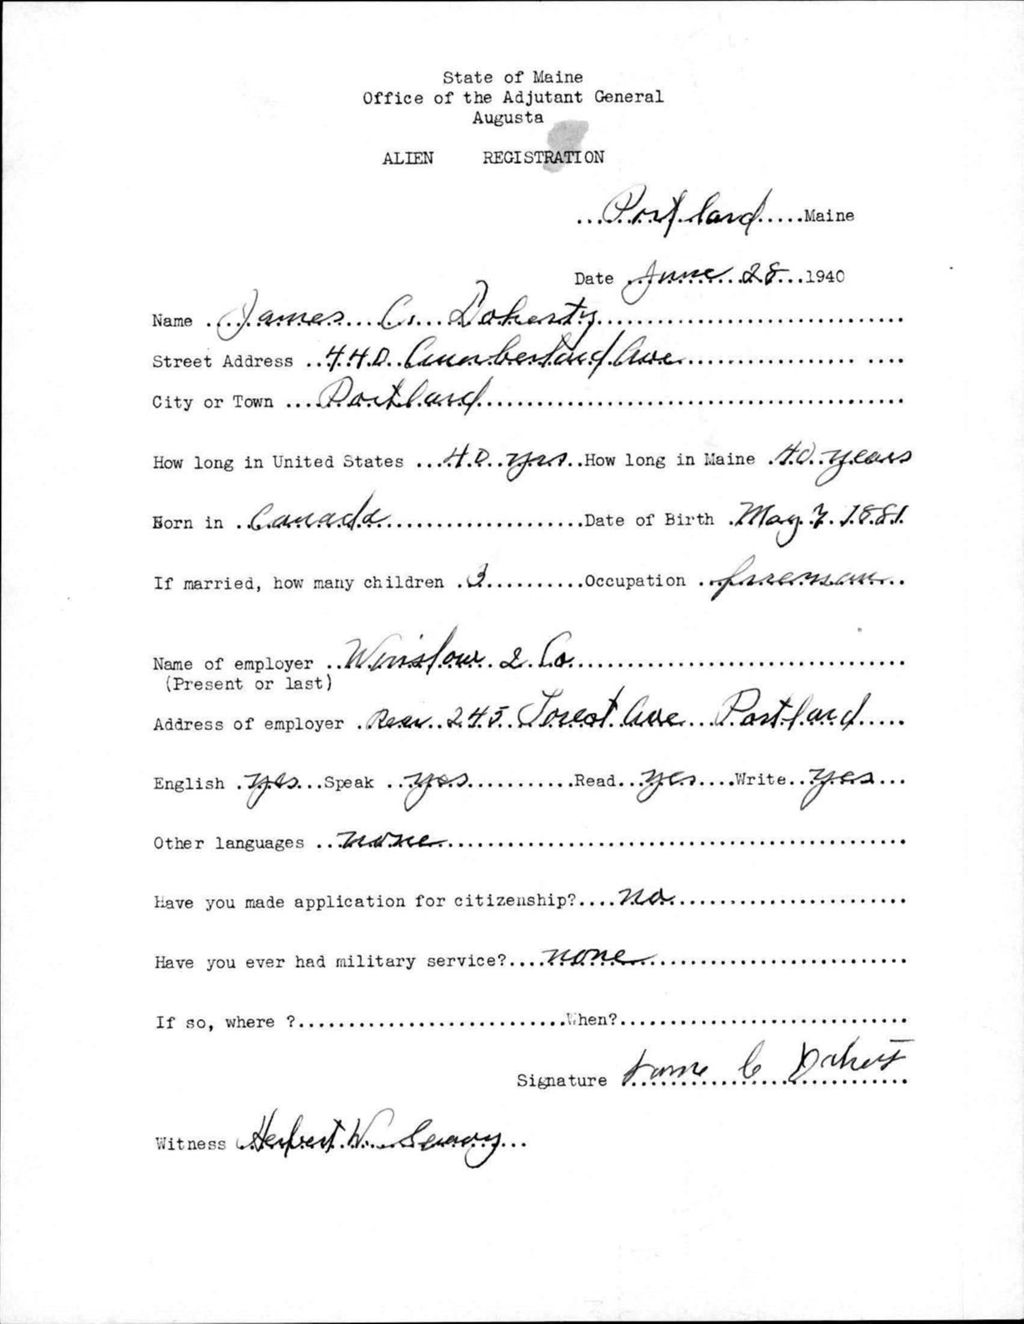 State of Maine
Office of the Adjutant General
Augusta
ALIEN REGISTRATION
...Portland.....Maine
Date June 28...1940
Name ...James...C....Doherty...
Street Address ..440 Cumberland Ave...
City or Town ....Portland...
How long in United States ...40..yrs..How long in Maine .40..years
Born in ..Canada...Date of Birth .May.7.1881.
If married, how many children .3..........Occupation ..fireman..
Name of employer ..Winslow. & Co...
(Present or last)
Address of employer .Rear..245. Forest Ave...Portland.....
English .yes...Speak ..yes...Read...yes....Write..yes...
Other languages ..none...
Have you made application for citizenship?....no...
Have you ever had military service?....none...
If so, where ?...When?...
Signature James C Doherty
Witness Herbert.W....